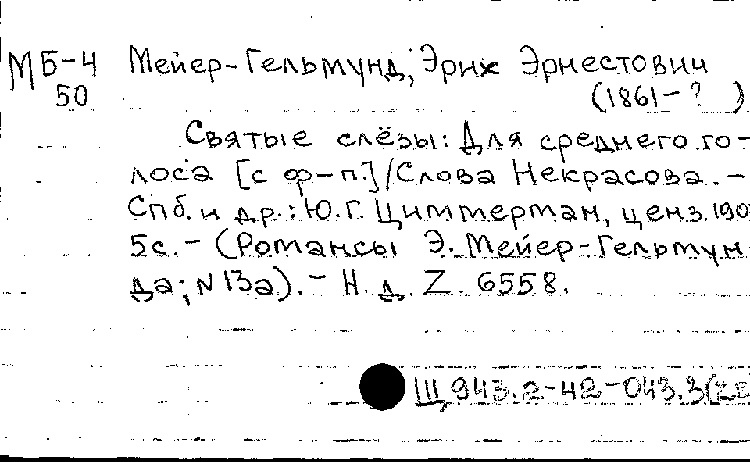 МБ-4 Мейер-Гельмунд, Эрих Эрнестович
50 (1861-? )
Святые слёзы: Для среднего го-
лоса [с ф-п.]/Слова Некрасова. -
Спб. и др.: Ю.Г. Циммерман, ценз. 190
5с. - (Романсы Э. Мейер-Гельмун
да; N 13а). - Н. д. Z. 6558.
Щ 943.2-42-043.3